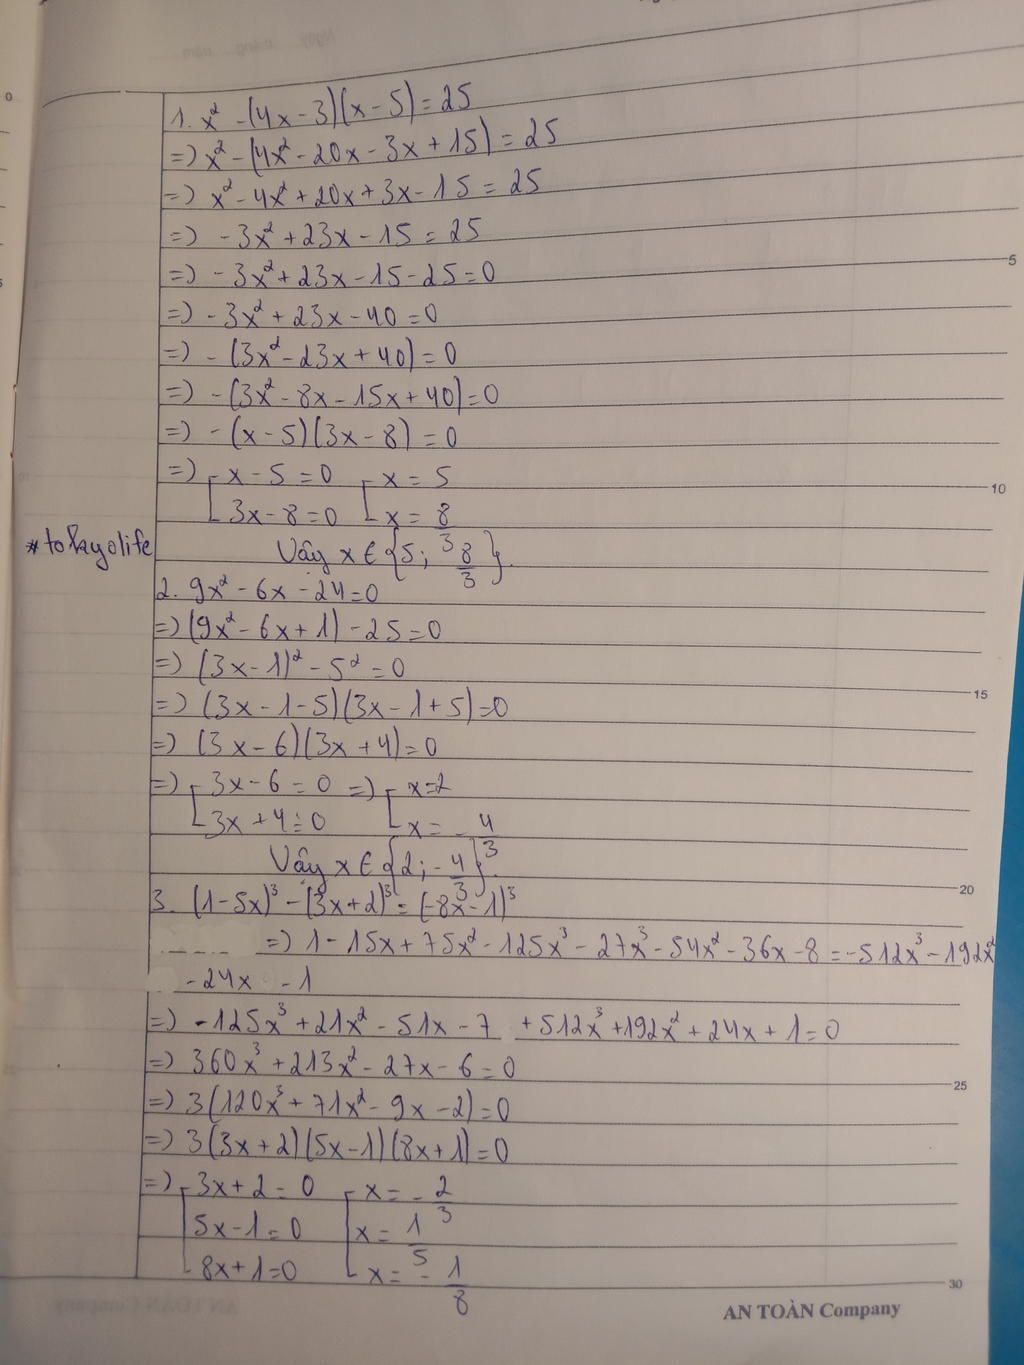 1. x² - (4x - 3)(x - 5) = 25
=) x² - (4x² - 20x - 3x + 15) = 25
=) x² - 4x² + 20x + 3x - 15 = 25
=) -3x² + 23x - 15 = 25
5
=) -3x² + 23x - 15 - 25 = 0
=) -3x² + 23x - 40 = 0
=) -(3x² - 23x + 40) = 0
=) -(3x² - 8x - 15x + 40) = 0
=) -(x - 5)(3x - 8) = 0
=) [ x - 5 = 0 [ x = 5
10
3x - 8 = 0 x = 8/3
*tokyolife
Vậy x ∈ {5; 8/3}.
2. 9x² - 6x - 24 = 0
=) (9x² - 6x + 1) - 25 = 0
=) (3x - 1)² - 5² = 0
15
=) (3x - 1 - 5)(3x - 1 + 5) = 0
=) (3x - 6)(3x + 4) = 0
=) [ 3x - 6 = 0 =) [ x = 2
3x + 4 = 0 x = -4/3
Vậy x ∈ {2; -4/3}.
20
3. (1 - 5x)³ - (3x + 2)³ = (-8x - 1)³
=) 1 - 15x + 75x² - 125x³ - 27x³ - 54x² - 36x - 8 = -512x³ - 192x²
- 24x - 1
=) -125x³ + 21x² - 51x - 7 + 512x³ + 192x² + 24x + 1 = 0
=) 360x³ + 213x² - 27x - 6 = 0
25
=) 3(120x³ + 71x² - 9x - 2) = 0
=) 3(3x + 2)(5x - 1)(8x + 1) = 0
=) [ 3x + 2 = 0 [ x = -2/3
5x - 1 = 0 x = 1/5
8x + 1 = 0 x = -1/8
30
AN TOÀN Company